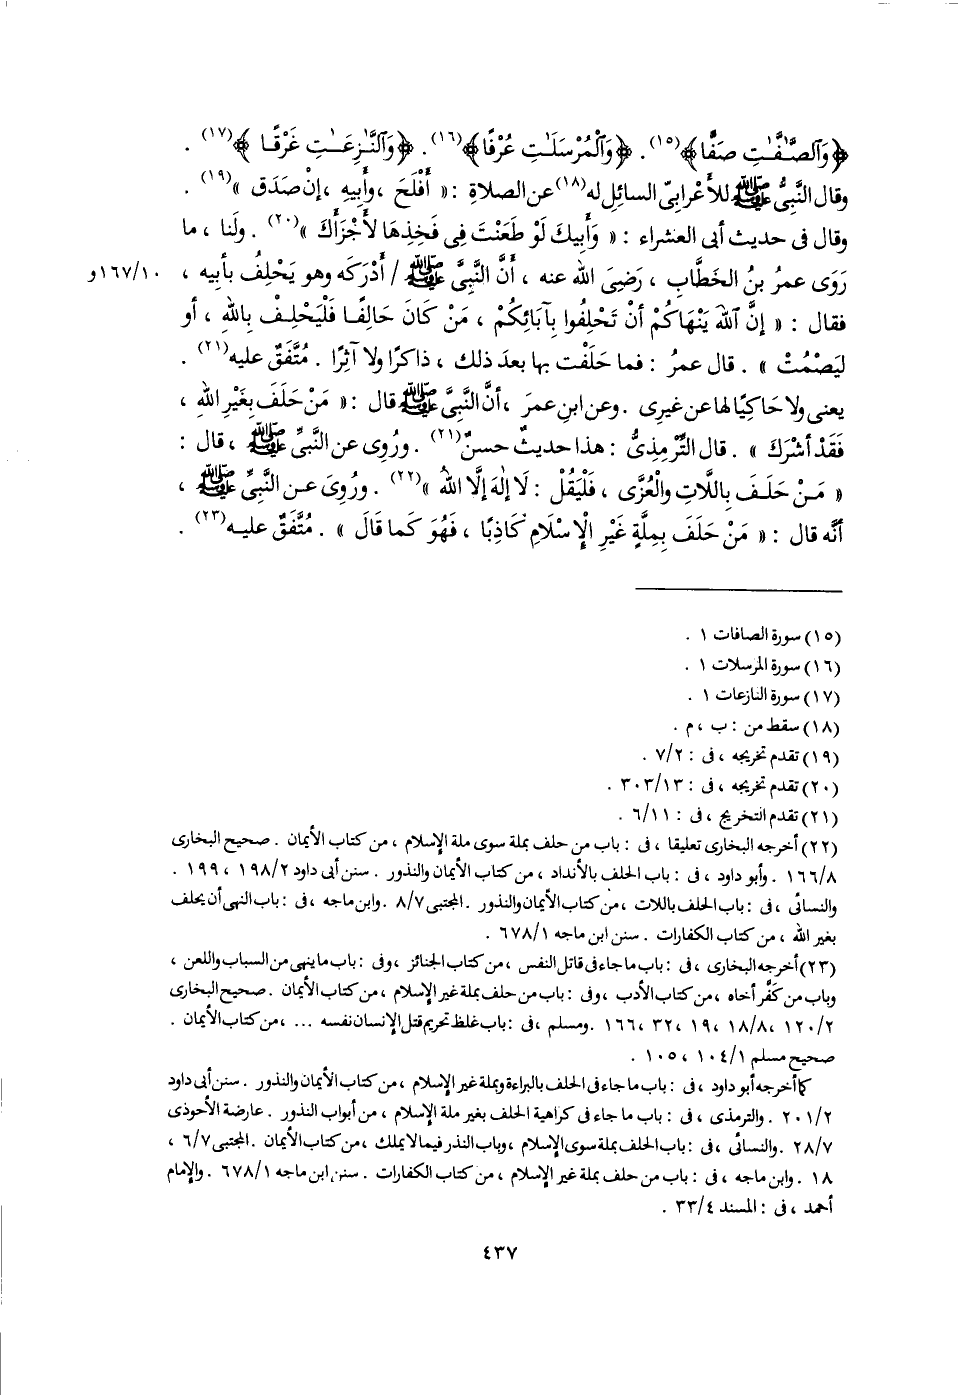 ﴿ وَٱلصَّـٰٓفَّـٰتِ صَفًّا ﴾(١٥) . ﴿ وَٱلْمُرْسَلَـٰتِ عُرْفًا ﴾(١٦) . ﴿ وَٱلنَّـٰزِعَـٰتِ غَرْقًا ﴾(١٧) .
وقال النَّبِىُّ ﷺ للأَعْرابِىِّ السائِلِ له(١٨) عن الصلاةِ : « أَفْلَحَ ، وأَبِيهِ ، إنْ صَدَق »(١٩) .
وقال فى حديث أبى العشراء : « وَأَبِيكَ لَوْ طَعَنْتَ فِى فَخِذِهَا لأَجْزَأَكَ »(٢٠) . ولَنا ، ما
رَوَى عمرُ بنُ الخَطَّابِ ، رَضِىَ اللهُ عنه ، أَنَّ النَّبِىَّ ﷺ / أَدْرَكَه وهو يَحْلِفُ بأبِيه ، ١٦٧/١٠و
فقال : « إنَّ اللهَ يَنْهَاكُمْ أَنْ تَحْلِفُوا بِآبَائِكُمْ ، مَنْ كَانَ حَالِفًا فَلْيَحْلِفْ بِاللهِ ، أو
لِيَصْمُتْ » . قال عمرُ : فما حَلَفْت بها بعدَ ذلك ، ذاكرًا ولا آثِرًا . مُتَّفَقٌ عليه(٢١) .
يعنى ولا حَاكِيًا لها عن غيرِى . وعن ابنِ عمرَ ، أنَّ النَّبِىَّ ﷺ قال : « مَنْ حَلَفَ بِغَيْرِ اللهِ ،
فَقَدْ أَشْرَكَ » . قال التِّرْمِذِىُّ : هذا حديثٌ حسنٌ(٢١) . ورُوِى عن النَّبِىِّ ﷺ ، قال :
« مَنْ حَلَفَ بِاللَّاتِ والْعُزَّى ، فَلْيَقُلْ : لَا إلٰهَ إلَّا اللهُ »(٢٢) . ورُوِىَ عن النَّبِىِّ ﷺ ،
أنَّه قال : « مَنْ حَلَفَ بِمِلَّةٍ غَيْرِ الْإِسْلَامِ كَاذِبًا ، فَهُوَ كَما قَالَ » . مُتَّفَقٌ عليه(٢٣) .
(١٥) سورة الصافات ١ .
(١٦) سورة المرسلات ١ .
(١٧) سورة النازعات ١ .
(١٨) سقط من : ب ، م .
(١٩) تقدم تخريجه ، فى : ٧/٢ .
(٢٠) تقدم تخريجه ، فى : ٣٠٣/١٣ .
(٢١) تقدم التخريج ، فى : ٦/١١ .
(٢٢) أخرجه البخارى تعليقا ، فى : باب من حلف بملة سوى ملة الإسلام ، من كتاب الأيمان . صحيح البخارى
١٦٦/٨ . وأبو داود ، فى : باب الحلف بالأنداد ، من كتاب الأيمان والنذور . سنن أبى داود ١٩٨/٢ ، ١٩٩ .
والنسائى ، فى : باب الحلف باللات ، من كتاب الأيمان والنذور . المجتبى ٨/٧ . وابن ماجه ، فى : باب النهى أن يحلف
بغير الله ، من كتاب الكفارات . سنن ابن ماجه ٦٧٨/١ .
(٢٣) أخرجه البخارى ، فى : باب ما جاء فى قاتل النفس ، من كتاب الجنائز ، وفى : باب ما ينهى من السباب واللعن ،
وباب من كَفَّر أخاه ، من كتاب الأدب ، وفى : باب من حلف بملة غير الإسلام ، من كتاب الأيمان . صحيح البخارى
١٢٠/٢ ، ١٨/٨ ، ١٩ ، ٣٢ ، ١٦٦ . ومسلم ، فى : باب غلظ تحريم قتل الإنسان نفسه ... ، من كتاب الأيمان .
صحيح مسلم ١٠٤/١ ، ١٠٥ .
كما أخرجه أبو داود ، فى : باب ما جاء فى الحلف بالبراءة وبملة غير الإسلام ، من كتاب الأيمان والنذور . سنن أبى داود
٢٠١/٢ . والترمذى ، فى : باب ما جاء فى كراهية الحلف بغير ملة الإسلام ، من أبواب النذور . عارضة الأحوذى
٢٨/٧ . والنسائى ، فى : باب الحلف بملة سوى الإسلام ، وباب النذر فيما لا يملك ، من كتاب الأيمان . المجتبى ٦/٧ ،
١٨ . وابن ماجه ، فى : باب من حلف بملة غير الإسلام ، من كتاب الكفارات . سنن ابن ماجه ٦٧٨/١ . والإمام
أحمد ، فى : المسند ٣٣/٤ .
٤٣٧